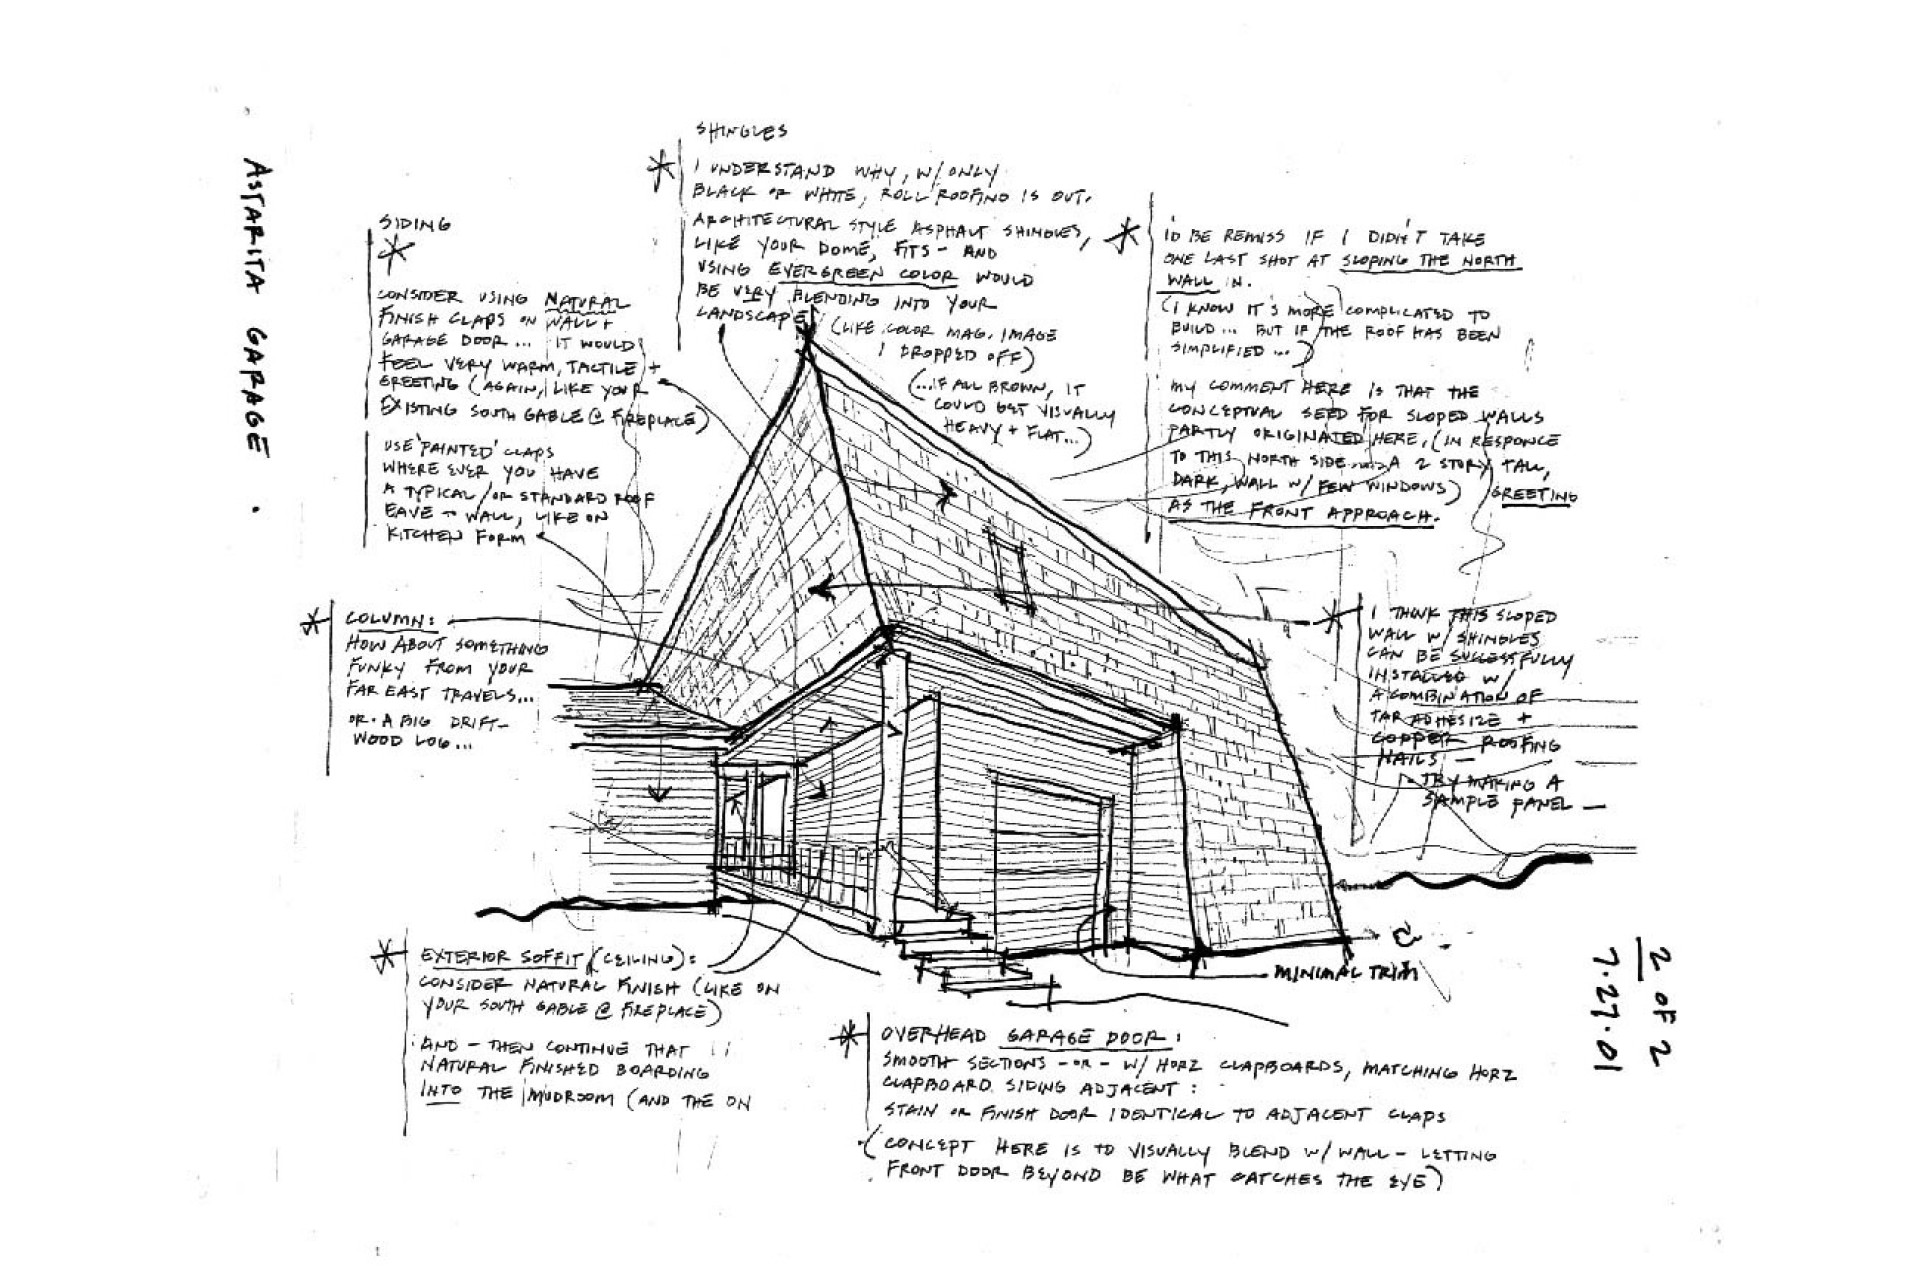 ASTARITA GARAGE .
SIDING
CONSIDER USING NATURAL
FINISH CLAPS ON WALL +
GARAGE DOOR ... IT WOULD
FEEL VERY WARM, TACTILE +
GREETING (AGAIN, LIKE YOUR
EXISTING SOUTH GABLE @ FIREPLACE)
USE 'PAINTED' CLAPS
WHERE EVER YOU HAVE
A TYPICAL / OR STANDARD ROOF
EAVE - WALL, LIKE ON
KITCHEN FORM
SHINGLES
I UNDERSTAND WHY, W/ ONLY
BLACK OR WHITE, ROLL ROOFING IS OUT.
ARCHITECTURAL STYLE ASPHALT SHINGLES,
LIKE YOUR DOME, FITS - AND
USING EVERGREEN COLOR WOULD
BE VERY BLENDING INTO YOUR
LANDSCAPE
(LIKE COLOR MAG. IMAGE
I DROPPED OFF)
(...IF ALL BROWN, IT
COULD GET VISUALLY
HEAVY + FLAT...)
I'D BE REMISS IF I DIDN'T TAKE
ONE LAST SHOT AT SLOPING THE NORTH
WALL IN.
(I KNOW IT'S MORE COMPLICATED TO
BUILD... BUT IF THE ROOF HAS BEEN
SIMPLIFIED ...)
MY COMMENT HERE IS THAT THE
CONCEPTUAL SEED FOR SLOPED WALLS
PARTLY ORIGINATED HERE, (IN RESPONCE
TO THIS NORTH SIDE... A 2 STORY TALL,
DARK, WALL W/ FEW WINDOWS) GREETING
AS THE FRONT APPROACH.
COLUMN:
HOW ABOUT SOMETHING
FUNKY FROM YOUR
FAR EAST TRAVELS...
OR - A BIG DRIFT-
WOOD LOG ...
I THINK THIS SLOPED
WALL W/ SHINGLES
CAN BE SUCCESSFULLY
INSTALLED W/
A COMBINATION OF
TAR ADHESIZE +
COPPER ROOFING
NAILS —
TRY MAKING A
SAMPLE PANEL —
EXTERIOR SOFFIT (CEILING):
CONSIDER NATURAL FINISH (LIKE ON
YOUR SOUTH GABLE @ FIREPLACE)
AND - THEN CONTINUE THAT
NATURAL FINISHED BOARDING
INTO THE MUDROOM (AND THE ON
MINIMAL TRIM
OVERHEAD GARAGE DOOR:
SMOOTH SECTIONS - OR - W/ HORZ CLAPBOARDS, MATCHING HORZ
CLAPBOARD SIDING ADJACENT:
STAIN OR FINISH DOOR IDENTICAL TO ADJACENT CLAPS
(CONCEPT HERE IS TO VISUALLY BLEND W/ WALL - LETTING
FRONT DOOR BEYOND BE WHAT CATCHES THE EYE)
2 OF 2
7.27.01